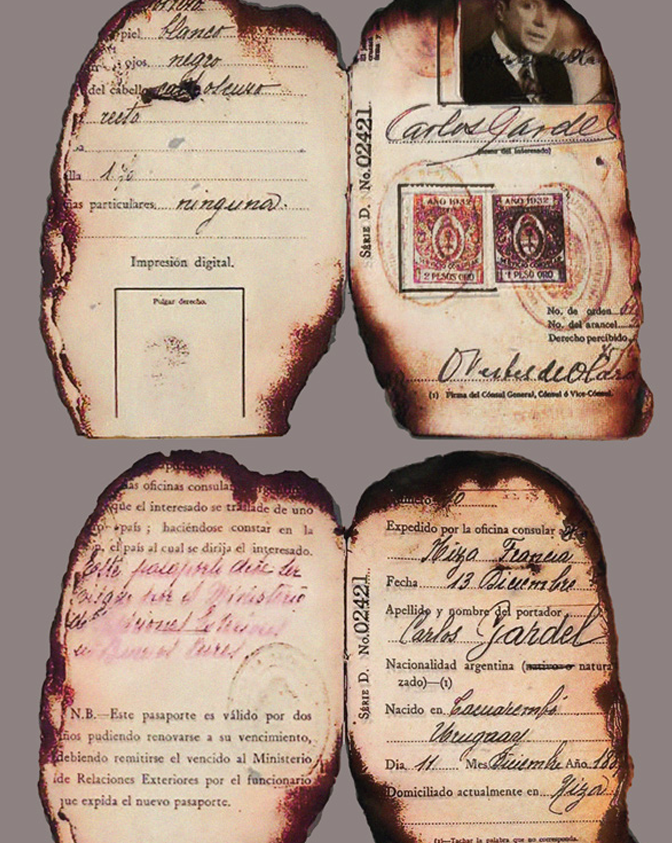 piel blanco
ojos negro
del cabello oscuro
recto
particulares ninguna.
Impresión digital.
Pulgar derecho.
SÉRIE D. No. 02421
Carlos Gardel
AÑO 1932
2 PESOS ORO
AÑO 1932
1 PESO ORO
No. de orden
No. del arancel
Derecho percibido
(1) Firma del Cónsul General, Cónsul ó Vice-Cónsul.
oficinas consula
que el interesado se traslade de uno
país; haciéndose constar en la
el país al cual se dirija el interesado.
Este pasaporte debe ser
por el Ministerio
de Relaciones Exteriores
en Buenos Aires.
N.B.—Este pasaporte es válido por dos
años pudiendo renovarse a su vencimiento,
debiendo remitirse el vencido al Ministerio
de Relaciones Exteriores por el funcionario
que expida el nuevo pasaporte.
SÉRIE D. No. 02421
Expedido por la oficina consular
Niza Francia
Fecha 13 Diciembre
Apellido y nombre del portador
Carlos Gardel
Nacionalidad argentina (nativo o natura
zado)—(1)
Nacido en Tacuarembó
Uruguay
Dia 11 Mes Diciembre Año 188
Domiciliado actualmente en Niza
(1)—Tachar la palabra que no corresponda.